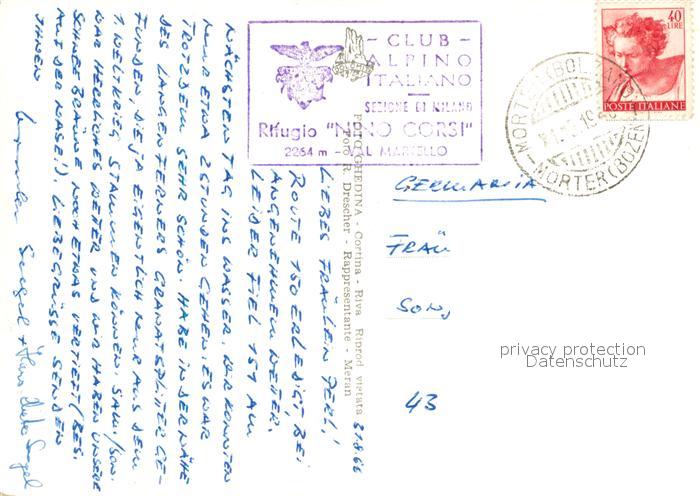 - CLUB -
ALPINO
ITALIANO
SEZIONE DI MILANO
Rifugio "NINO CORSI"
2264 m - VAL MARTELLO
40
LIRE
POSTE ITALIANE
MORTER (BOLZANO)
MORTER (BOZEN)
FOTO GHEDINA - Cortina - Riva Riprod vietata
Foto R. Drescher - Rappresentante - Meran
31.8.66
LIEBES FRÄULEIN PERL!
ROUTE 150 ERLEDIGT, BEI
ANGENEHMEM WETTER.
LEIDER FIEL 151 AM
NÄCHSTEN TAG INS WASSER. WIR KONNTEN
NUR ETWA 2 STUNDEN GEHEN. ES WAR
TROTZDEM SEHR SCHÖN. HABE IN DER NÄHE
DES LANGEN FERNERS GRANATSPLITTER GE-
FUNDEN, DIE JA EIGENTLICH NUR AUS DEM
1. WELTKRIEG STAMMEN KÖNNEN.
WAR HERRLICHES WETTER UND WIR HABEN UNSERE
SCHNEEBRÄUNE NOCH ETWAS VERTIEFT (BES.
AUF DER NASE!). LIEBE GRÜSSE SENDEN
IHNEN
GERMANIA
FRÄU
SON,
43
privacy protection
Datenschutz